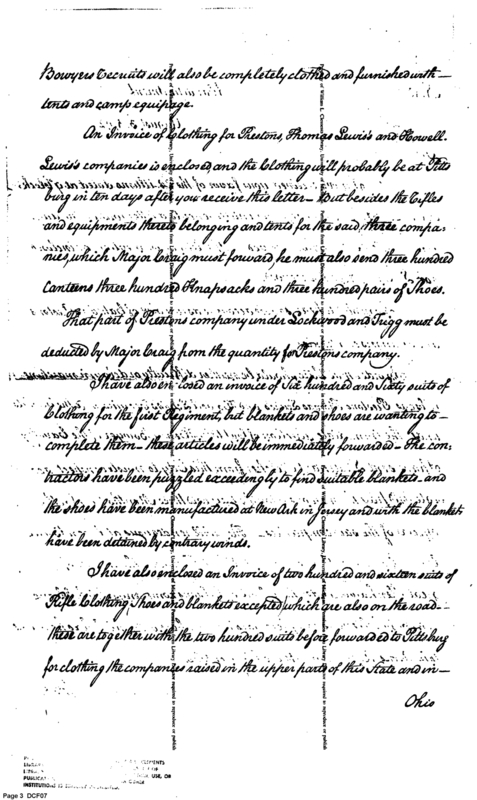 Bowyers recruits will also be completely clothed and furnished with
tents and camp equipage.
An Invoice of Clothing for Prestons, Thomas Lewis's and Howell
Lewis's companies is enclosed, and the Clothing will probably be at Pitts
burg in ten days after you receive this letter— But besides the Rifles
and equipments thereto belonging and tents for the said three compa-
nies, which Major Craig must forward, he must also send three hundred
Canteens three hundred Knapsacks and three hundred pairs of Shoes.
That part of Prestons company under Lockwood and Trigg must be
deducted by Major Craig from the quantity for Prestons company.
I have also enclosed an invoice of Six hundred and Sixty suits of
Clothing for the first Regiment, but blankets and shoes are wanting to
complete them— these articles will be immediately forwarded— The con-
tractors have been puzzled exceedengly to find suitable blankets— and
the shoes have been manufactured at New Ark in Jersey and with the blankets
have been detained by contrary winds.
I have also enclosed an Invoice of two hundred and sixteen suits of
Rifle Clothing, (Shoes and blankets excepted) which are also on the road—
these are together with the two hundred suits before forwarded to Pittsburg
for clothing the companies raised in the upper parts of this State and in—
Ohio
USE, OR
INSTITUTIONS IS
Page 3 DCF07